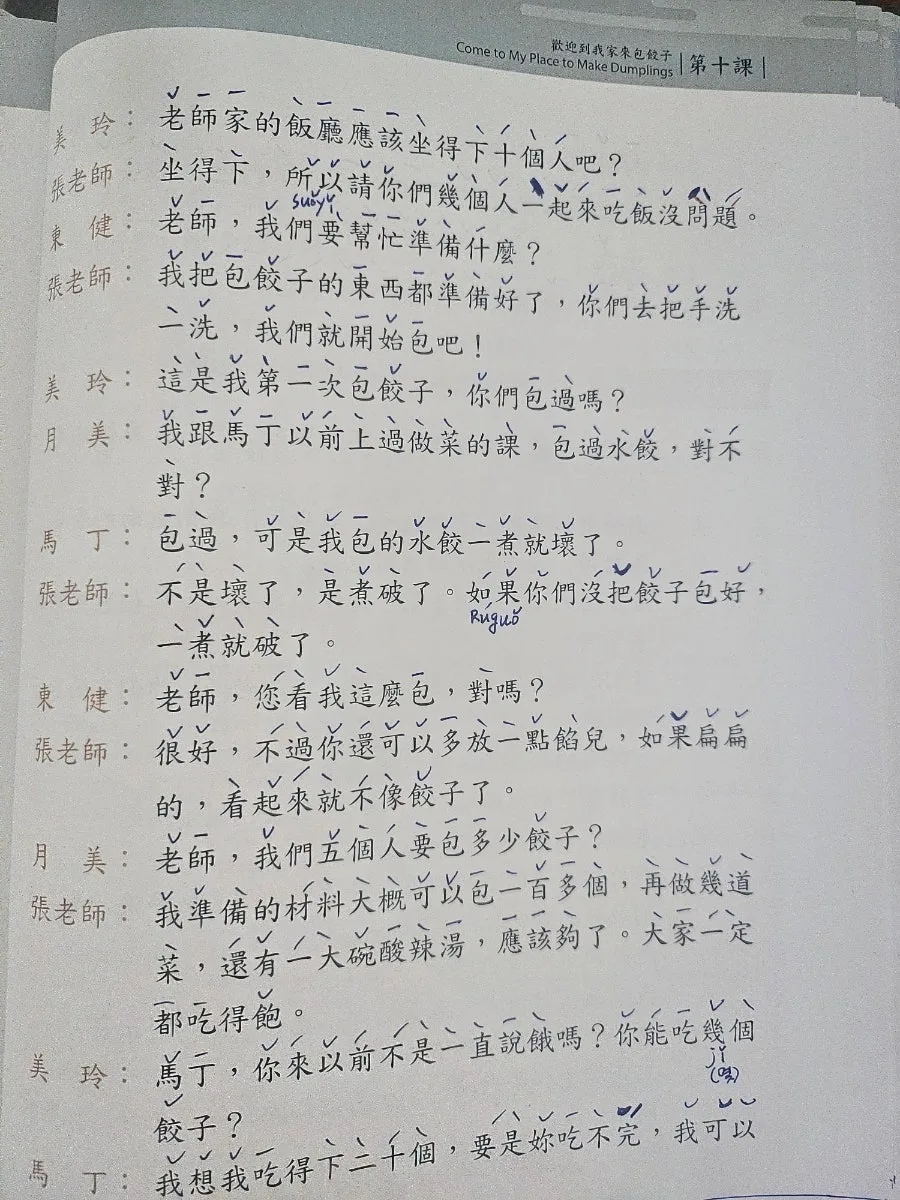 歡迎到我家來包餃子
Come to My Place to Make Dumplings
第十課
美玲：老師家的飯廳應該坐得下十個人吧？
張老師：坐得下，所以請你們幾個人一起來吃飯沒問題。
suǒyǐ
東健：老師，我們要幫忙準備什麼？
張老師：我把包餃子的東西都準備好了，你們去把手洗
一洗，我們就開始包吧！
美玲：這是我第二次包餃子，你們包過嗎？
月美：我跟馬丁以前上過做菜的課，包過水餃，對不
對？
馬丁：包過，可是我包的水餃一煮就壞了。
張老師：不是壞了，是煮破了。如果你們沒把餃子包好，
Rúguǒ
一煮就破了。
東健：老師，您看我這麼包，對嗎？
張老師：很好，不過你還可以多放一點餡兒，如果扁扁
的，看起來就不像餃子了。
月美：老師，我們五個人要包多少餃子？
張老師：我準備的材料大概可以包一百多個，再做幾道
菜，還有一大碗酸辣湯，應該夠了。大家一定
都吃得飽。
美玲：馬丁，你來以前不是一直說餓嗎？你能吃幾個
jǐ
餃子？
馬丁：我想我吃得下二十個，要是妳吃不完，我可以